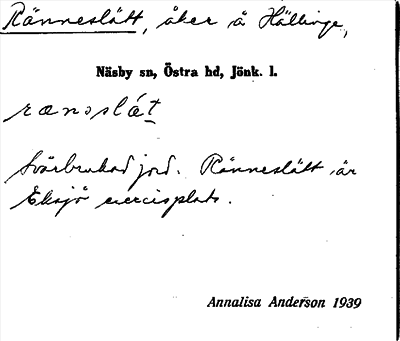 Ränneslätt, åker å Hällinge,
Näsby sn, Östra hd, Jönk. l.
rænəslát
Svårbrukad jord. Ränneslätt är
Eksjö exercisplats.
Annalisa Anderson 1939